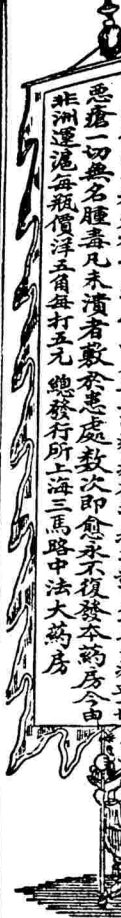 惡瘡一切無名腫毒凡未潰者敷於患處数次即愈永不復發本藥房今由
非洲運滬每瓶價洋五角每打五元 總發行所上海三馬路中法大葯房